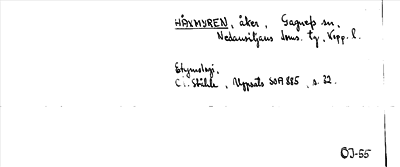 HÅXMYREN, åker, Gagnefs sn,
Nedansiljans doms. tg, Kopp. l.
Etymologi.
C.I. Ståhle, Uppsats SOA 885, s. 32.
OJ-55